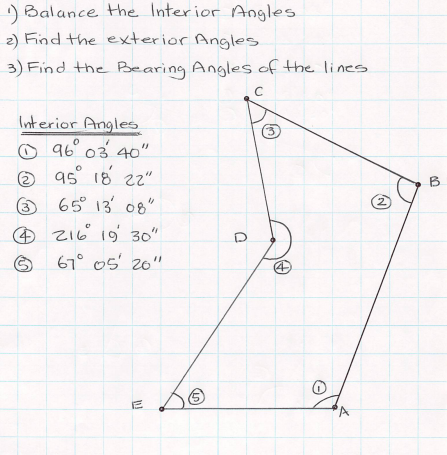 1) Balance the Interior Angles
2) Find the exterior Angles
3) Find the Bearing Angles of the lines
Interior Angles
① 96° 03' 40"
② 95° 18' 22"
③ 65° 13' 08"
④ 216° 19' 30"
⑤ 67° 05' 20"
C
③
B
②
D
④
①
⑤
E
A